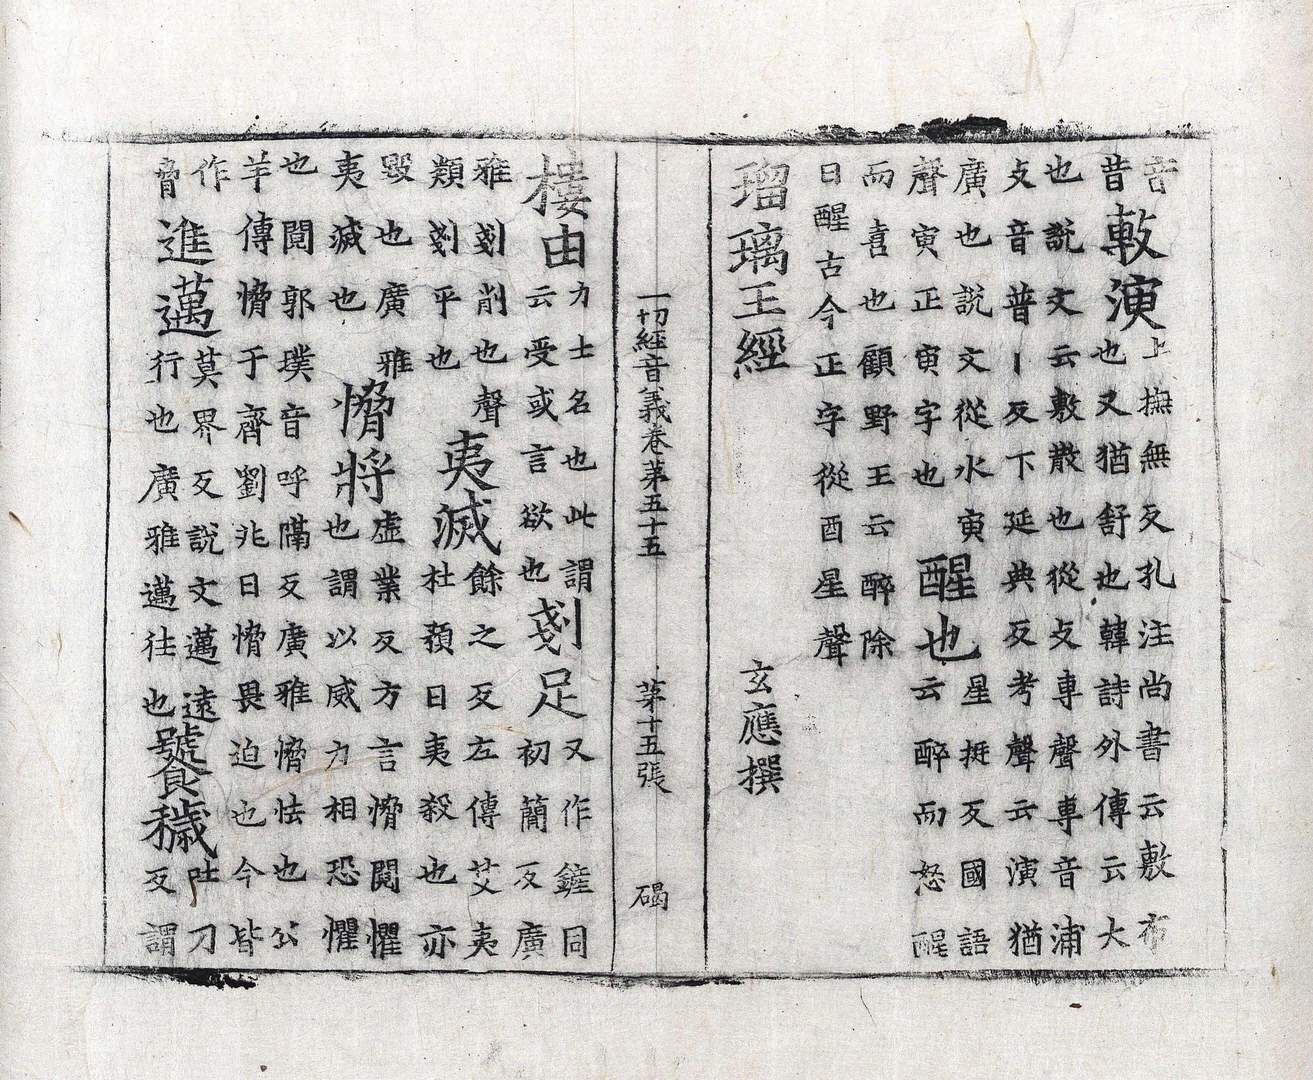 音
昔
敷演
上撫無反孔注尚書云敷布
也又猶舒也韓詩外傳云大
也說文云敷散也從攴尃聲尃音浦
攴音普卜反下延典反考聲云演猶
廣也說文從水寅
聲寅正寅字也
醒也
星挺反國語
云醉而怒醒
而喜也顧野王云醉除
日醒古今正字從酉星聲
瑠璃王經 玄應撰
一切經音義卷第五十五 第十五張 碣
樓由
力士名也此謂
云受或言欲也
剗足
又作鏟同
初簡反廣
雅剗削也聲
類剗平也
夷滅
餘之反左傳芟夷
杜預曰夷殺也亦
毀也廣雅
夷滅也
愶將
虛業反方言愶鬩懼
也謂以威力相恐懼
也鬩郭璞音呼隔反廣雅愶怯也公
羊傳愶于齊劉兆曰愶畏迫也今皆
作
脅
進邁
莫界反說文邁遠
行也廣雅邁往也
饕穢
吐刀
反謂